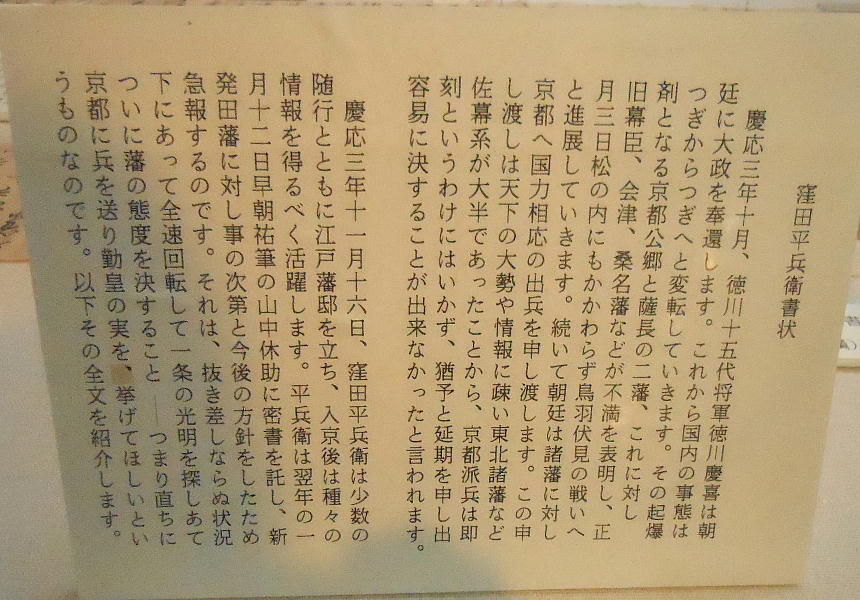 窪田平兵衛書状
慶応三年十月、徳川十五代将軍徳川慶喜は朝
廷に大政を奉還します。これから国内の事態は
つぎからつぎへと変転していきます。その起爆
剤となる京都公郷と薩長の二藩、これに対し
旧幕臣、会津、桑名藩などが不満を表明し、正
月三日松の内にもかかわらず鳥羽伏見の戦いへ
と進展していきます。続いて朝廷は諸藩に対し
京都へ国力相応の出兵を申し渡します。この申
し渡しは天下の大勢や情報に疎い東北諸藩など
佐幕系が大半であったことから、京都派兵は即
刻というわけにはいかず、猶予と延期を申し出
容易に決することが出来なかったと言われます。
慶応三年十一月十六日、窪田平兵衛は少数の
随行とともに江戸藩邸を立ち、入京後は種々の
情報を得るべく活躍します。平兵衛は翌年の一
月十二日早朝祐筆の山中休助に密書を託し、新
発田藩に対し事の次第と今後の方針をしたため
急報するのです。それは、抜き差しならぬ状況
下にあって全速回転して一条の光明を探しあて
ついに藩の態度を決すること―つまり直ちに
京都に兵を送り勤皇の実を、挙げてほしいとい
うものなのです。以下その全文を紹介します。